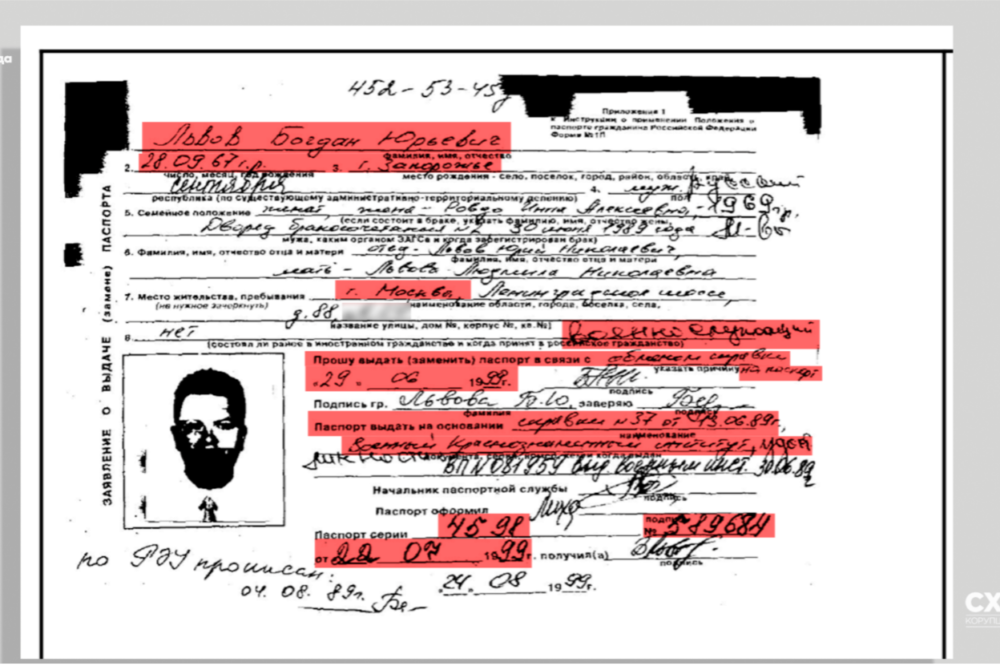 452-53-45
Приложение 1
к Инструкции о применении Положения о
паспорте гражданина Российской Федерации
Форма №1П
Львов Богдан Юрьевич
фамилия, имя, отчество
2. 28.09.67 г.р. 3. г. Запорожье
число, месяц, год рождения место рождения - село, поселок, город, район, область, край,
сентября 4. муж. русский
республика (по существующему административно-территориальному делению) пол
5. Семейное положение женат, жена - Ровдо Инна Алексеевна, 1969 г.р.
(если состоит в браке, указать фамилию, имя, отчество жены,
Дворец бракосочетания №2 30 июня 1989 года
мужа, каким органом ЗАГСа и когда зарегистрирован брак)
6. Фамилия, имя, отчество отца и матери отец - Львов Юрий Николаевич,
фамилия, имя, отчество отца и матери
мать - Львова Людмила Николаевна
7. Место жительства, пребывания г. Москва, Ленинградское шоссе,
(не нужное зачеркнуть) наименование области, города, поселка, села,
д. 88
название улицы, дом №, корпус №, кв.№)
8. нет военнослужащий
(состоял ли ранее в иностранном гражданстве и когда принят в российское гражданство)
ЗАЯВЛЕНИЕ О ВЫДАЧЕ (замене) ПАСПОРТА
Прошу выдать (заменить) паспорт в связи с обменом справки
указать причину на паспорт
"29" 06 1999г.
подпись
Подпись гр. Львова Б.Ю. заверяю
фамилия подпись
Паспорт выдать на основании справки №37 от 13.06.89г.
наименование
Военный Краснознаменный институт, удос
личности ВП №081959 выд. военным инст. 30.06.89г
Начальник паспортной службы
подпись
Паспорт оформил
подпись
Паспорт серии 45 98 № 589684
от 22 07 1999г. получил(а)
подпись
"24" 08 1999г.
по РЭУ прописан:
04. 08. 89г.
СХ
КОРУПЦ